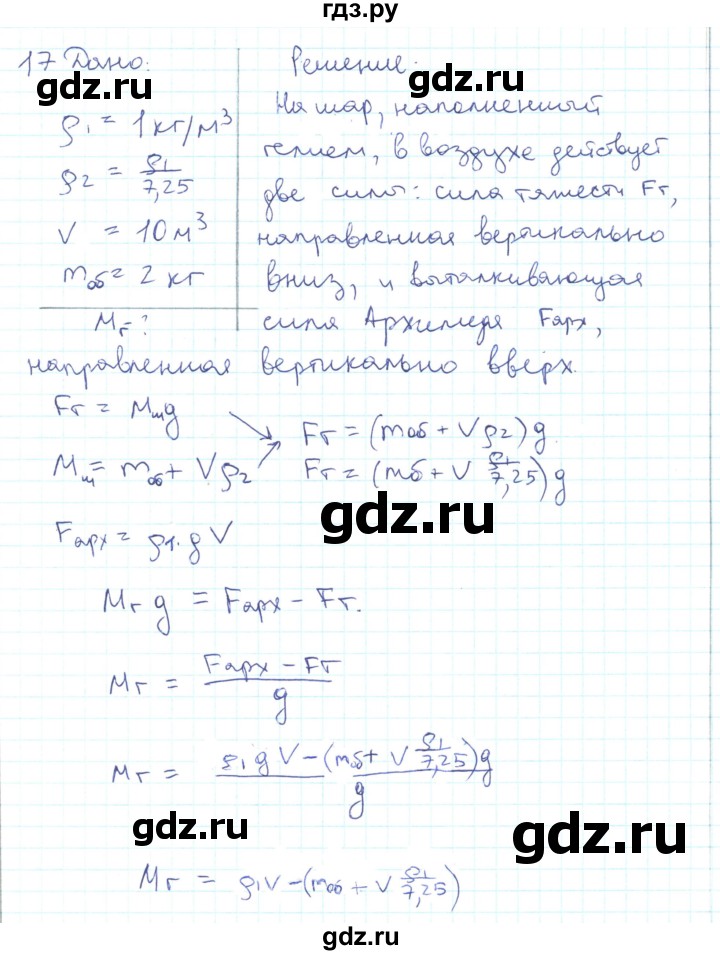 гдз.ру
17 Дано:
Решение.
gdz.ru
gdz.ru
ρ1 = 1 кг/м³
ρ2 = ρ1/7,25
V = 10 м³
mоб = 2 кг
Mг?
На шар, наполненный
гелием, в воздухе действует
две силы: сила тяжести Fт,
направленная вертикально
вниз, и выталкивающая
сила Архимеда Fарх,
направленная вертикально вверх.
Fт = Mшg
Mш = mоб + Vρ2
Fт = (mоб + Vρ2)g
Fт = (mб + V ρ1/7,25)g
gdz.ru
Fарх = ρ1·gV
Mг g = Fарх – Fт.
Mг = Fарх – Fт / g
Mг = ρ1gV – (mоб + V ρ1/7,25)g / g
gdz.ru
gdz.ru
Mг = ρ1V – (mоб + V ρ1/7,25)
gdz.ru